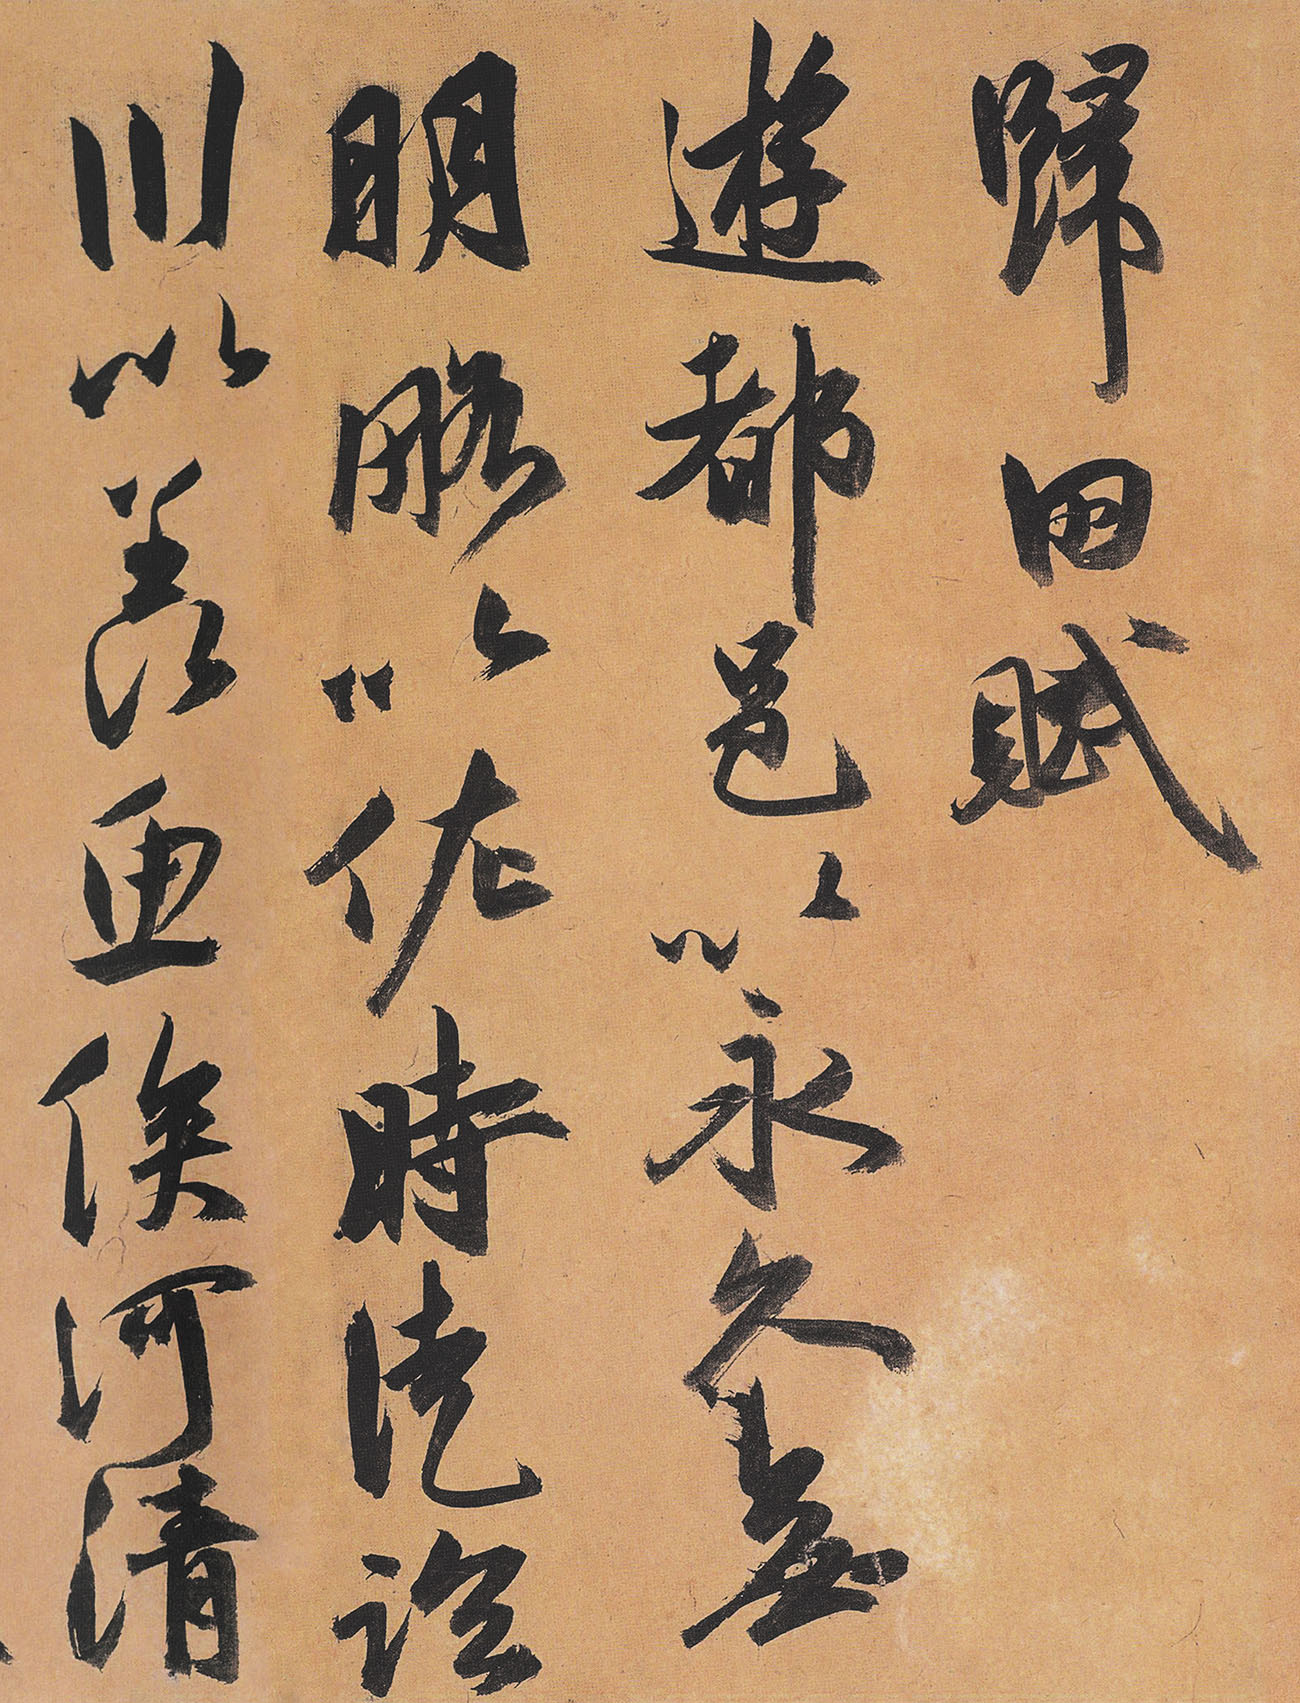 歸田賦
遊都邑以永久無
明略以佐時徒臨
川以羨魚俟河清